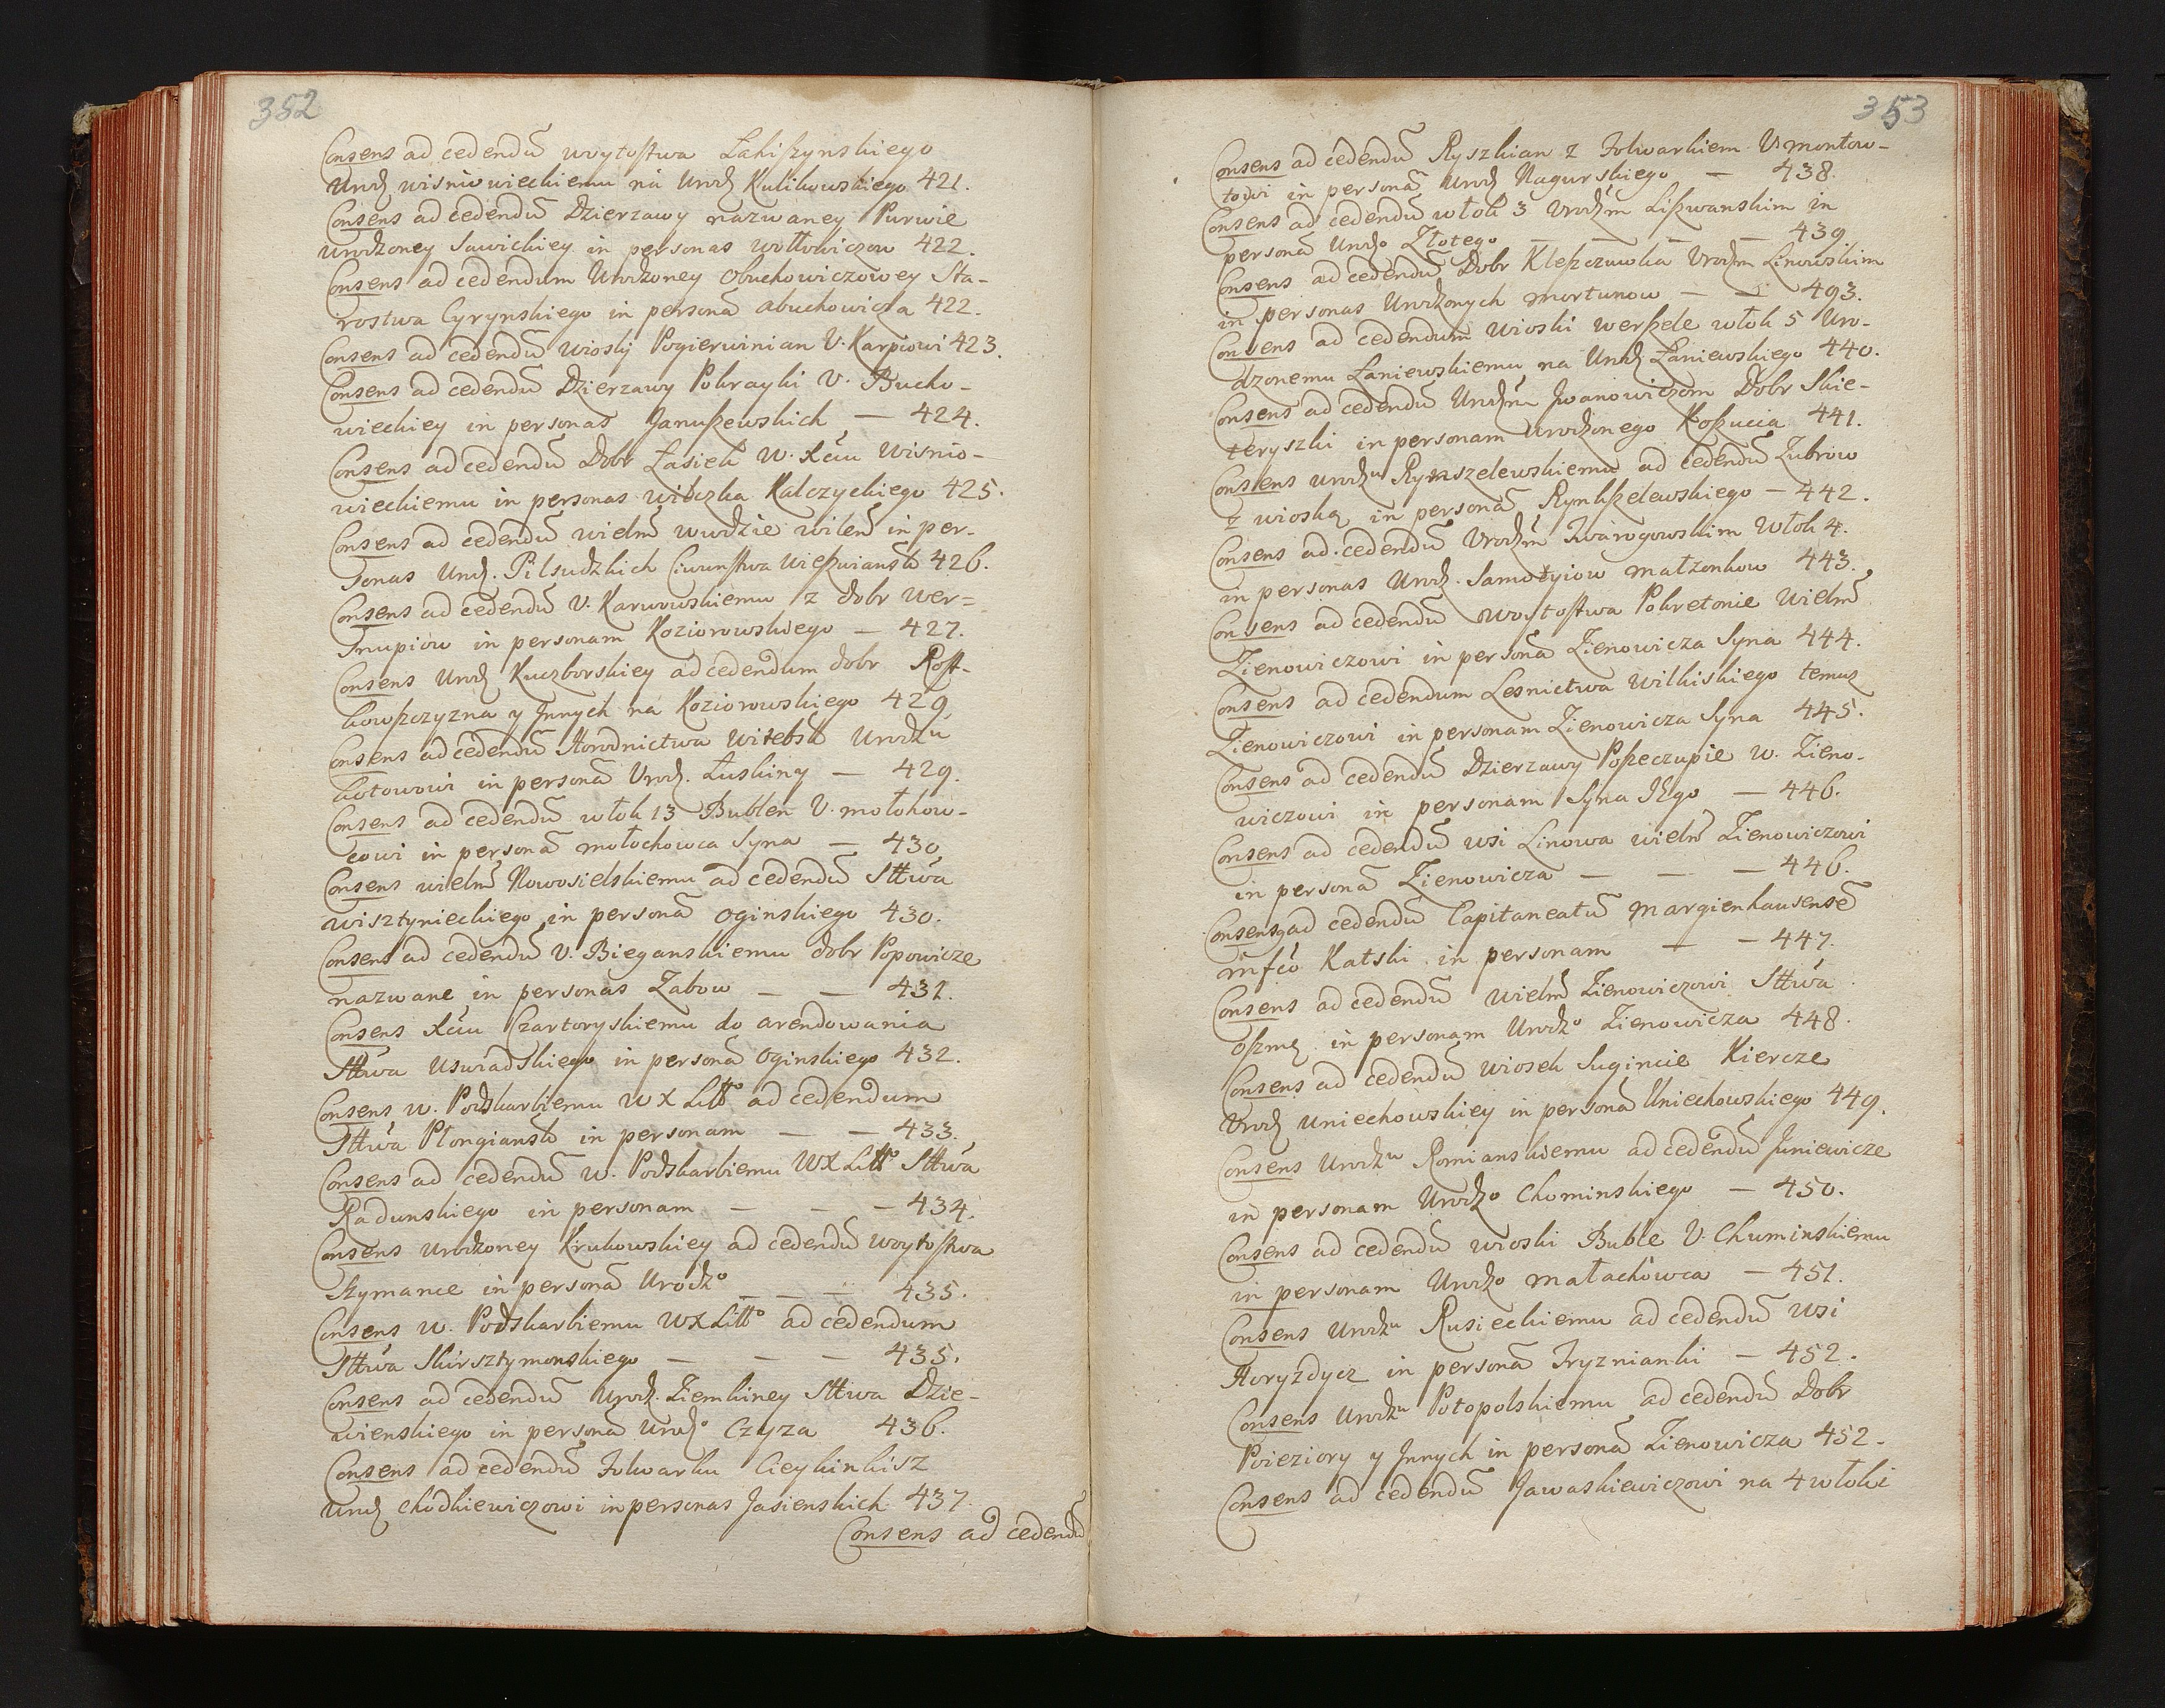 352
Consens ad cedendũ woytostwa Łakiszynskiego
Urodz wisniowieckiemu na Urodz Kulikowskiego 421.
Consens ad cedendũ Dzierzawy nazwaney Purwie
urodzoney Sawickiey in personas wołłowiczow 422.
Consens ad cedendum Urodzoney Obuchowiczowey Sta-
rostwa Cyrynskiego in personã abuchowicza 422.
Consens ad cedendũ wioskj Pogierwinian V. Karpiowi 423.
Consens ad cedendũ Dzierzawy Pokrayki V. Bucho-
wieckiey in personas Januszewskich — 424.
Consens ad cedendũ Dobr Łasiek W. Xciu Wisnio-
wieckiemu in personas wilczka Kalczyckiego 425.
Consens ad cedendũ wielm̃ wwdzie wilen̄ in per-
sonas Urodz. Pilsudzkich Ciwunstwa wieszwiansk 426.
Consens ad cedendũ V. Karwowskiemu z dobr Wer=
Trupiow in personam Koziorowskiego — 427.
Consens Urodz Kuczborskiey ad cedendum dobr Rost-
kowszczyzna y Jnnych na Koziorowskiego 429
Consens ad cedendũ Horodnictwa witebsk Urodzu
kotowowi in personã Urodz. Łuskiny — 429.
Consens ad cedendũ włok 13 Bublen V. mołokow-
cowi in personã mołochowca Syna — 430
Consens wielm̃ Nowosielskiemu ad cedendũ Sttwa
wisztynieckiego in personã Oginskiego 430.
Consens ad cedendũ V. Bieganskiemu dobr Popowicze
nazwane in personas Zabow — — 431.
Consens Xciu Czartoryskiemu do arendowania
Sttwa Uswiadskiego in personã Oginskiego 432.
Consens w. Podskarbiemu W X Litto ad cedendum
Sttwa Płongiansk in personam — — 433.
Consens ad cedendũ w. Podskarbiemu WX Litto Sttwa
Radunskiego in personam — — — 434.
Consens Urodzoney Krukowskiey ad cedendũ woytostwa
Szymance in personã Urodzo — — — 435.
Consens w. Podskarbiemu WX Litto ad cedendum
Sttwa Skirsztymonskiego — — — 435.
Consens ad cedendũ Urodz. Ziemkiney Sttwa Dzie-
wienskiego in personã Urodzo Czyza 436.
Consens ad cedendũ Folwarku Cieykinkisz
Urodz Chodkiewiczowi in personas Jasienskich 437.
Consens ad cedendũ
353
Consens ad cedendũ Ryszkian z Folwarkiem Vmontow-
towi in personã Urodz Nagurskiego — 438.
Consens ad cedendũ włok 3 Vrodzm̃ Liszwanskim in
personã Urodzo Złotego — — — — 439
Consens ad cedendũ Dobr Kleszczuwka Vrodzm Linowskim
in personas Urodzonych mortunow — — 493.
Consens ad cedendum wioski werszele włok 5 Uro-
dzonemu Łaniewskiemu na Urodz Łaniewskiego 440.
Consens ad cedendũ Urodzm̃ Jwanowiczom Dobr Skie-
teryszki in personam Urodzonego Koszucia 441.
Consens urodzu Rymszelewskiemu ad cedendũ Zubrow
z wioską in personã Rymkszelewskiego — 442.
Consens ad cedendũ Vrodzm̃ Twarogowskim włok 4.
in personas Urodz. Samotyiow małzonkow 443.
Consens ad cedendũ woytostwa Pokretonie Wielm̃
Zienowiczowi in personã Zienowicza Syna 444.
Consens ad cedendum Lesnictwa Wilkiskiego temuz
Zienowiczowi in personam Zienowicza Syna 445.
Consens ad cedendũ Dzierzawy Poszeczupie w. Zieno-
wiczowi in personam Syna JEgo — 446.
Consens ad cedendũ wsi Linowa wielm̃ Zienowiczowi
in personã Zienowicza — — — 446.
Consens ad cedendũ Capitaneatũ Margienhausensẽ
mfco Katski in personam — — 447.
Consens ad cedendũ wielm̃ Zienowiczowi Sttwa
Oszmę in personam Urodzo Zienowicza 448.
Consens ad cedendũ wiosek Sugincie Kiercze
Vrodz Uniechowskiey in personã Uniechowskiego 449.
Consens Urodzu Romianskiemu ad cedendũ Juniewicze
in personam Urodzo Chominskiego — 450.
Consens ad cedendũ wioski Buble V. Chuminskiemu
in personam Urodzo małachowca — 451.
Consens Urodzu Rusieckiemu ad cedendũ wsi
Horyzdycz in personã Fryznianki — 452.
Consens Urodzu Potopolskiemu ad cedendũ Dobr
Poieziory y Jnnych in personã Zienowicza 452.
Consens ad cedendũ Jawaskiewiczowi na 4 włoki